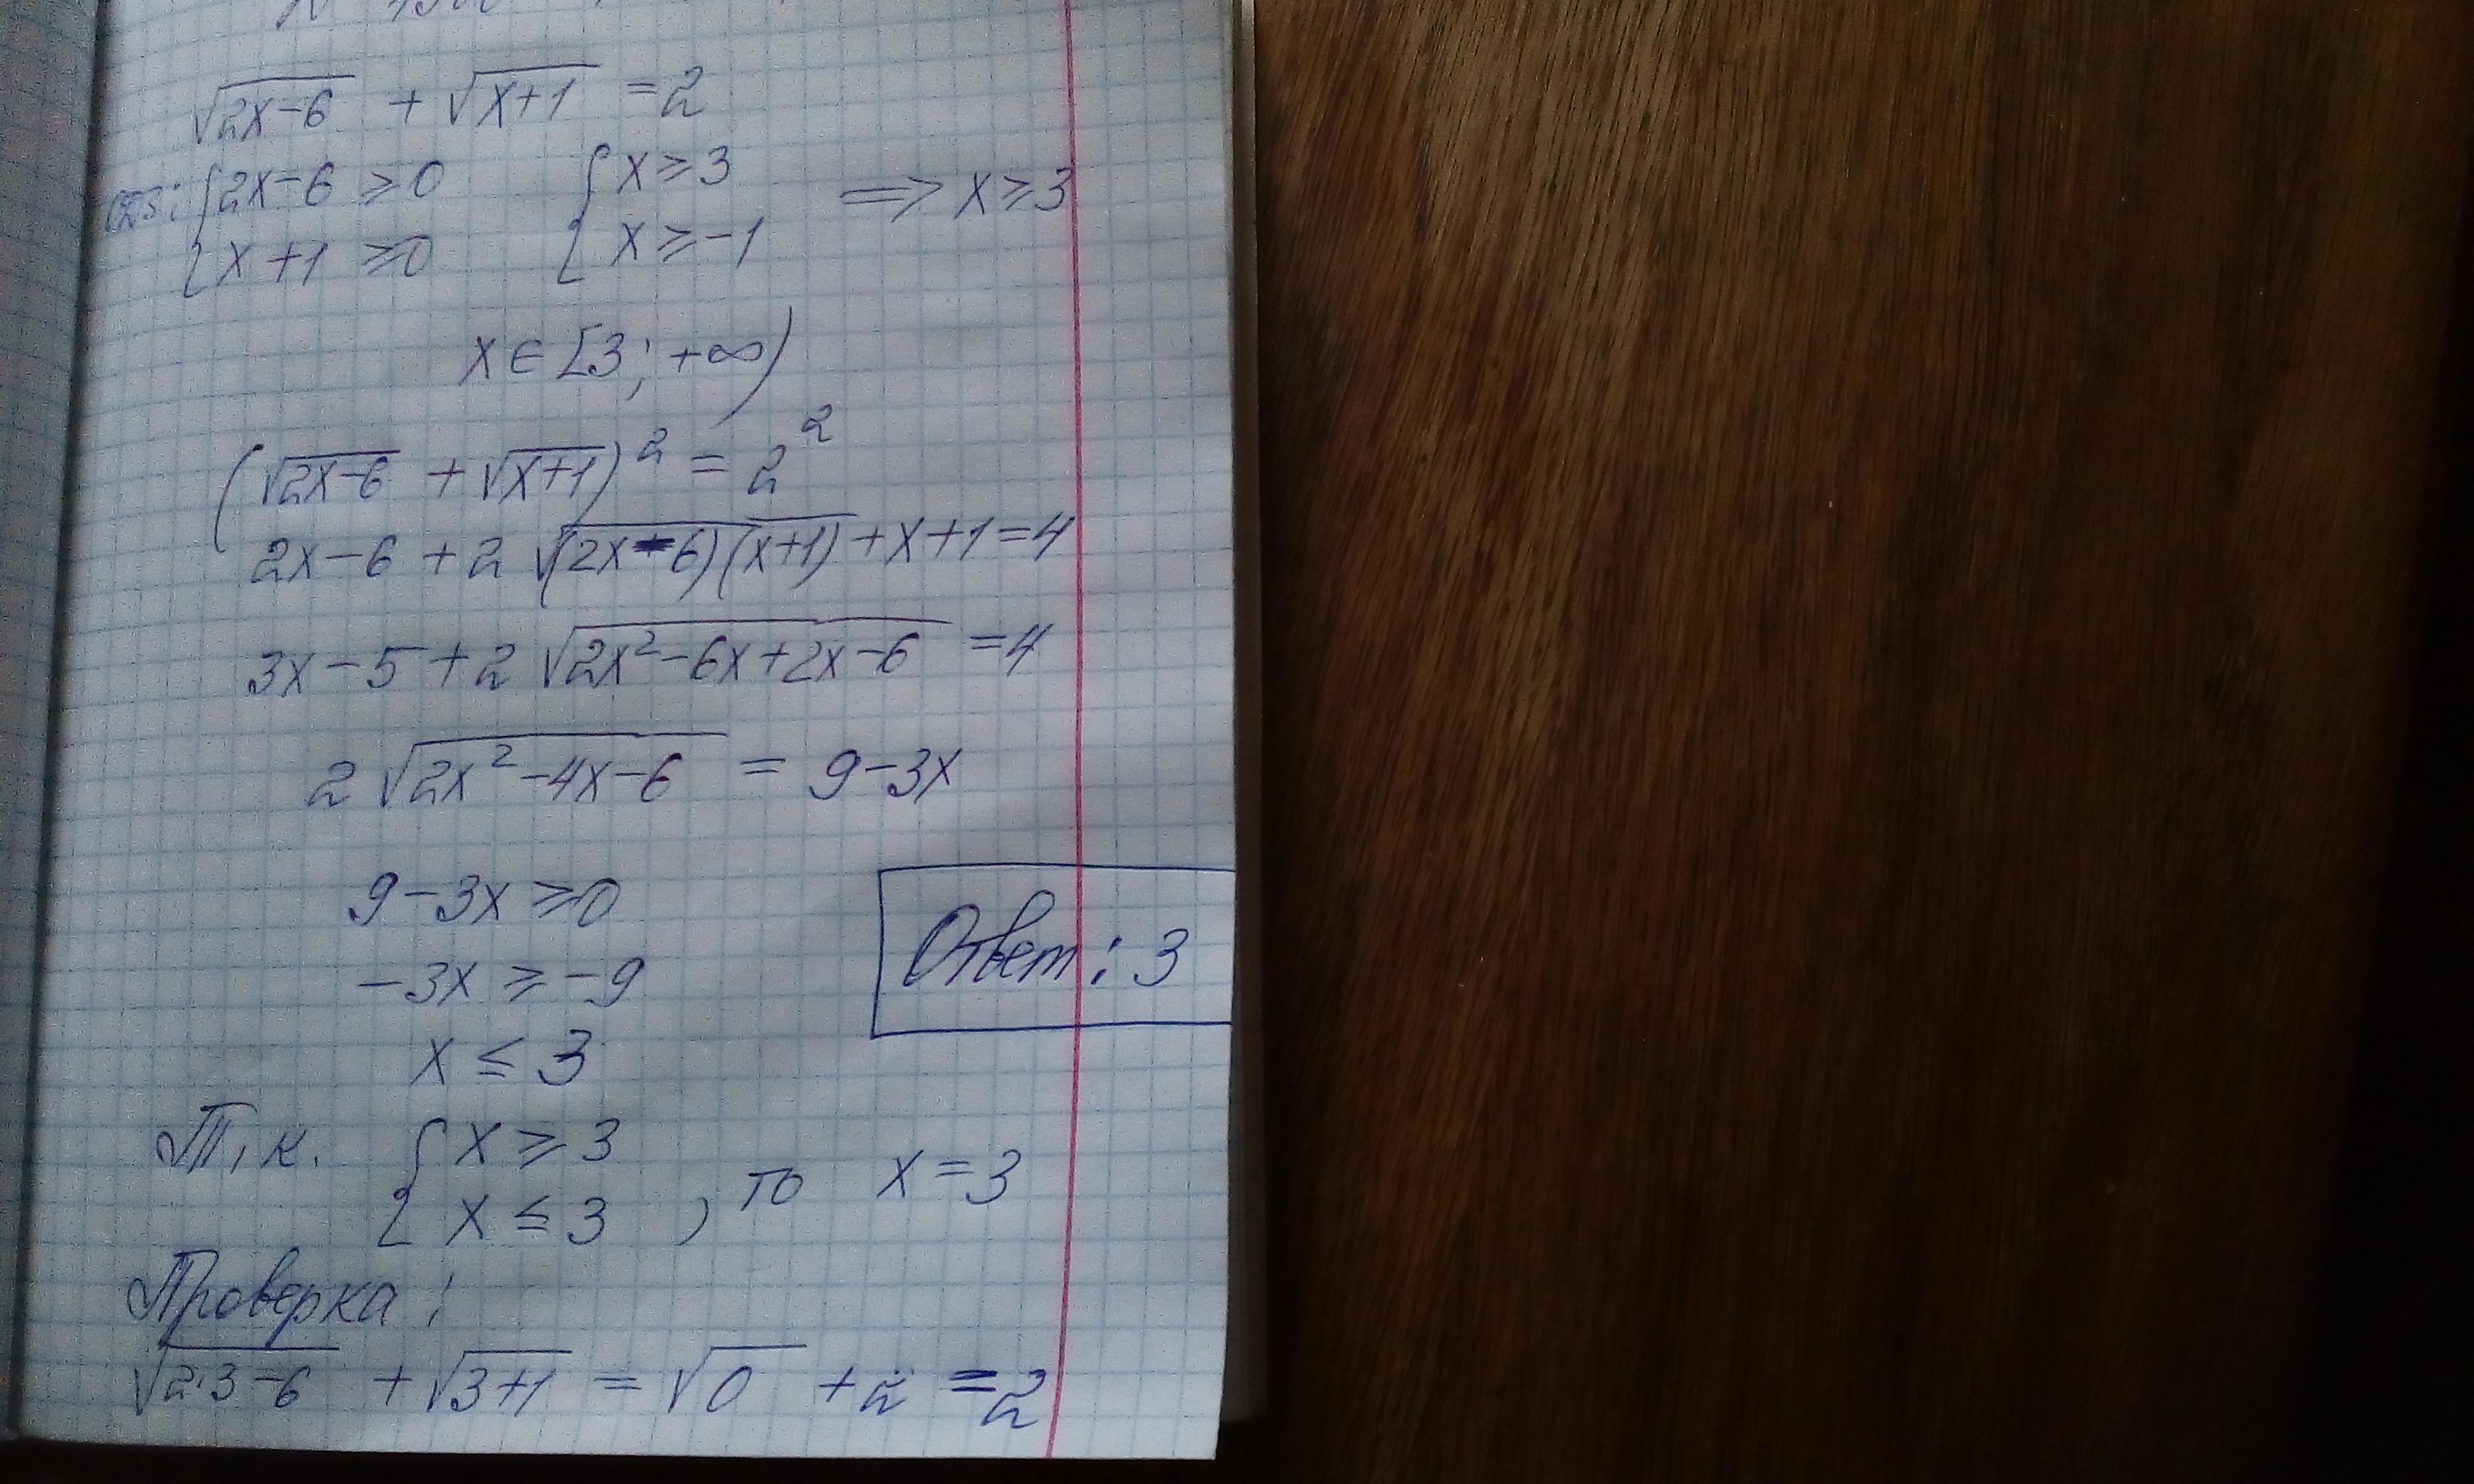 √(2x-6) + √(x+1) = 2
{2x-6 ≥ 0 {x ≥ 3 => x ≥ 3
{x+1 ≥ 0 {x ≥ -1
x ∈ [3; +∞)
(√(2x-6) + √(x+1))² = 2²
2x-6 + 2√((2x-6)(x+1)) + x+1 = 4
3x-5+2√(2x²-6x+2x-6) = 4
2√(2x²-4x-6) = 9-3x
9-3x ≥ 0
Ответ: 3
-3x ≥ -9
x ≤ 3
Т.к. {x ≥ 3
{x ≤ 3, то x = 3
Проверка:
√(2·3-6) + √(3+1) = √0 + 2 = 2